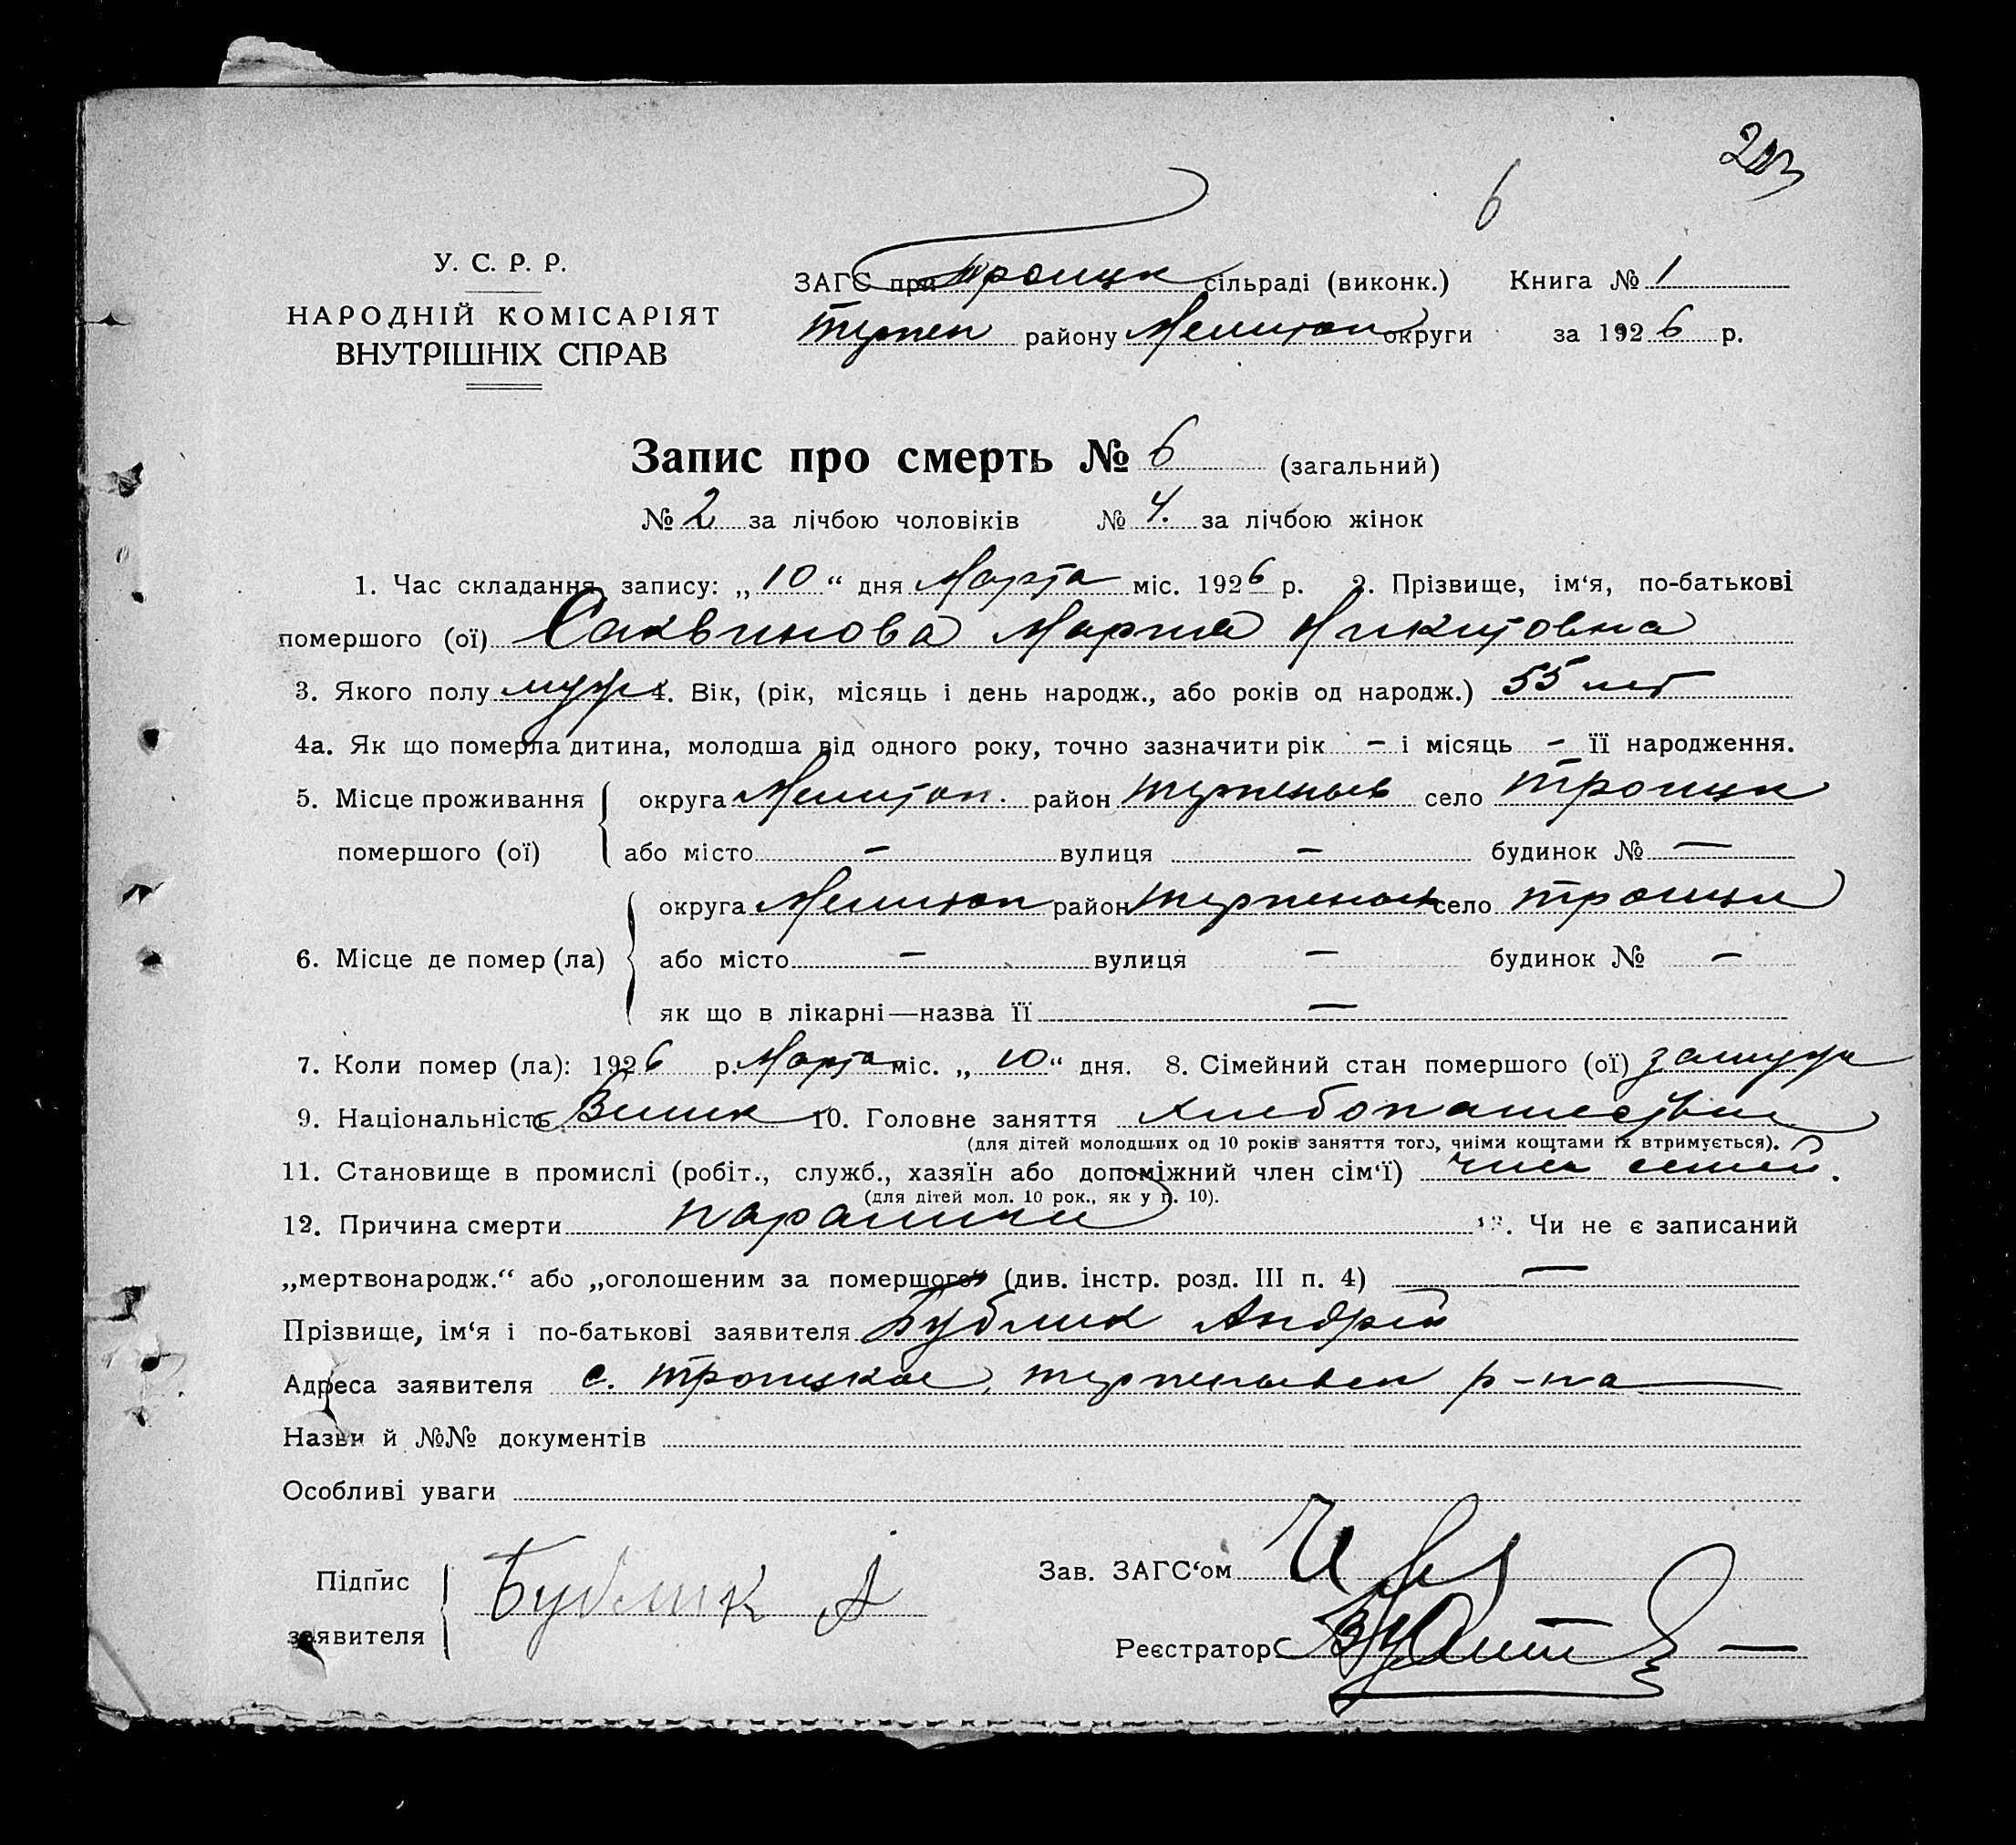 203
6
У. С. Р. Р.
НАРОДНІЙ КОМІСАРІЯТ
ВНУТРІШНІХ СПРАВ
ЗАГС при Троицк сільраді (виконк.) Книга № 1
Терпен району Мелитоп округи за 1926 р.
Запис про смерть № 6 (загальний)
№ 2 за лічбою чоловіків № 4. за лічбою жінок
1. Час складання запису: „10“ дня Марта міс. 1926 р. 2. Прізвище, ім‘я, по-батькові
помершого (ої) Саквинова Мария Никитовна
3. Якого полу муж 4. Вік, (рік, місяць і день народж., або років од народж.) 55 лет
4а. Як що померла дитина, молодша від одного року, точно зазначити рік – і місяць – її народження.
5. Місце проживання округа Мелитоп. район Терпеньев село Троицк
помершого (ої) або місто – вулиця – будинок № –
округа Мелитоп район Терпеньев село Троицк
6. Місце де помер (ла) або місто – вулиця – будинок № –
як що в лікарні—назва її –
7. Коли помер (ла): 1926 р. Марта міс. „10“ дня. 8. Сімейний стан помершого (ої) замужн
9. Національність 10. Головне заняття хлебопашество
(для дітей молодших од 10 років заняття того, чиїми кощтами їх втримується).
11. Становище в промислі (робіт., служб., хазяїн або допоміжний член сім‘ї) член семьи.
(для дітей мол. 10 рок., як у п. 10).
12. Причина смерти паралич 13. Чи не є записаний
„мертвонародж.“ або „оголошеним за помершого“ (див. інстр. розд. III п. 4) –
Прізвище, ім‘я і по-батькові заявителя Бублик Андрей
Адреса заявителя с. Троицкое, Терпеньевск р-на
Назви й №№ документів
Особливі уваги
Підпис Бублик А
заявителя
Зав. ЗАГС‘ом
Реєстратор